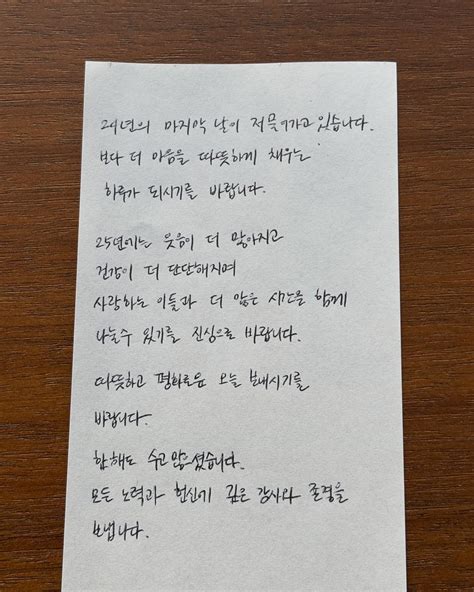 24년의 마지막 날이 저물어가고 있습니다.
보다 더 마음을 따뜻하게 채우는
하루가 되시기를 바랍니다.
25년에는 웃음이 더 많아지고
건강이 더 단단해지며
사랑하는 이들과 더 많은 시간을 함께
나눌수 있기를 진심으로 바랍니다.
따뜻하고 평화로운 오늘 보내시기를
바랍니다.
한해도 수고 많으셨습니다.
모든 노력과 헌신에 깊은 감사와 존경을
보냅니다.